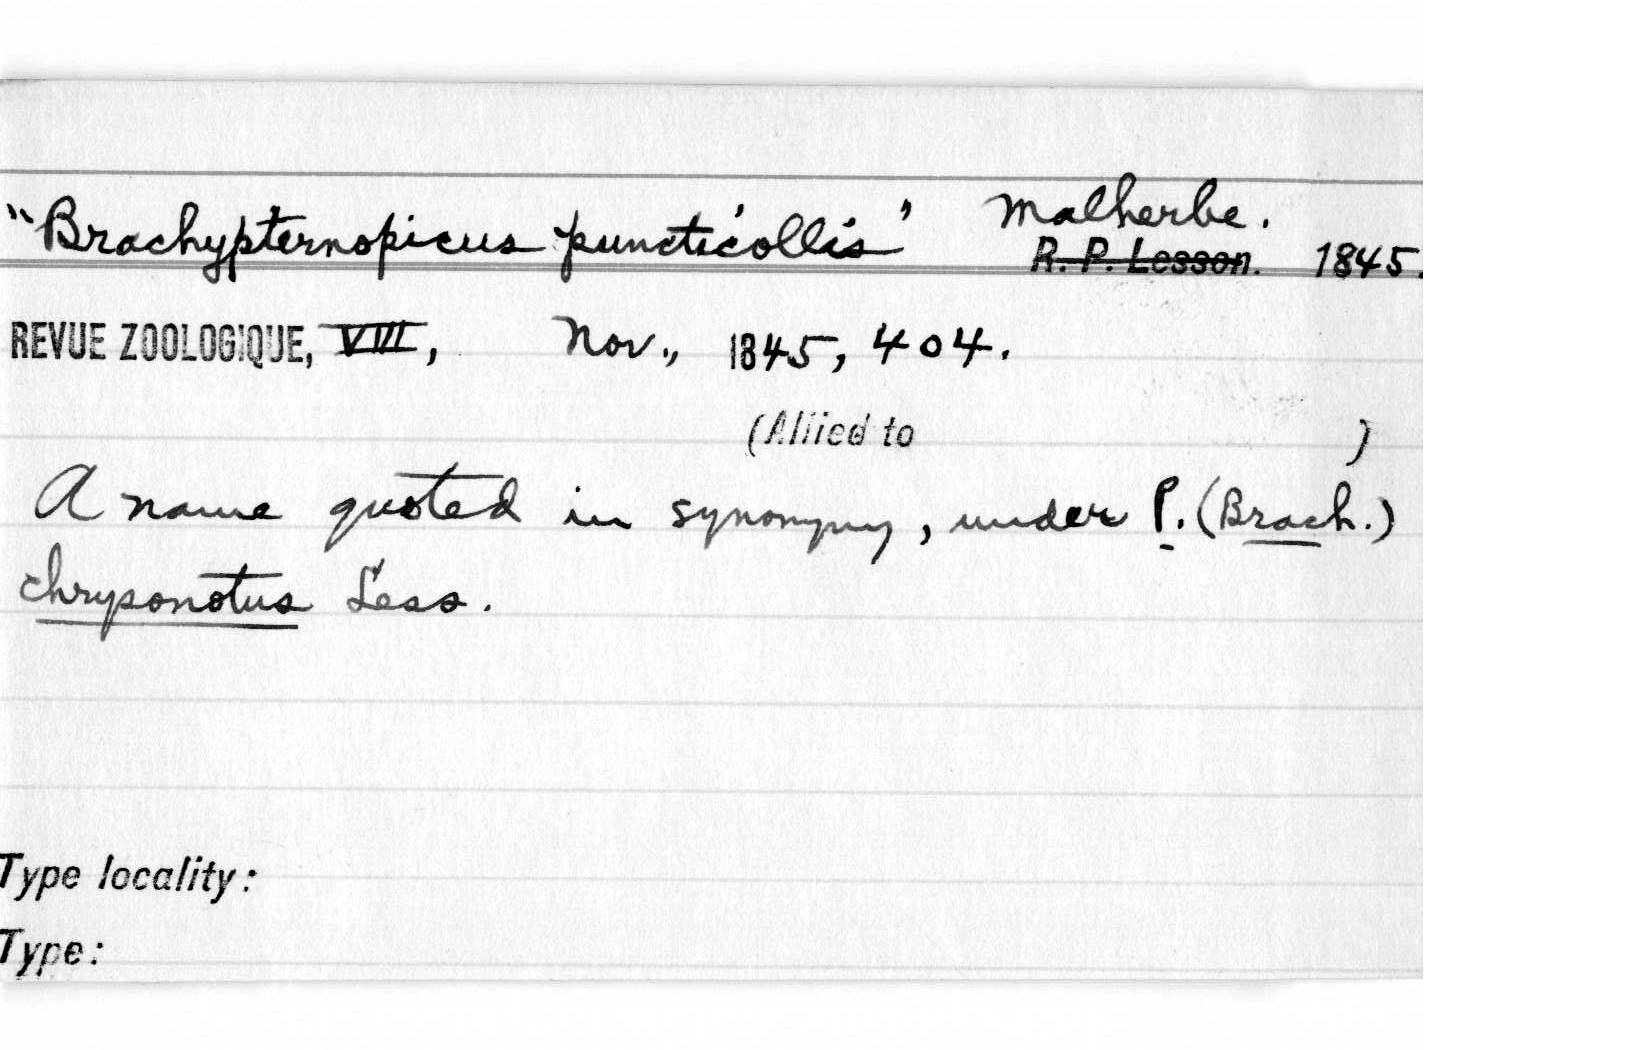 "Brachypternopicus puncticollis" Malherbe.
R. P. Lesson. 1845.
REVUE ZOOLOGIQUE, VIII, Nov., 1845, 404.
(Allied to )
A name quoted in synonymy, under P. (Brach.)
chrysonotus Less.
Type locality:
Type: